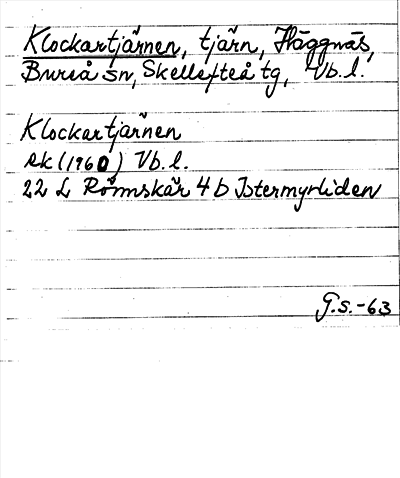 Klockartjärnen, tjärn, Häggnäs,
Bureå sn, Skellefteå tg, Vb. l.
Klockartjärnen
ek (1960) Vb. l.
22 L Rönnskär 4 b Istermyrliden
G.S.-63